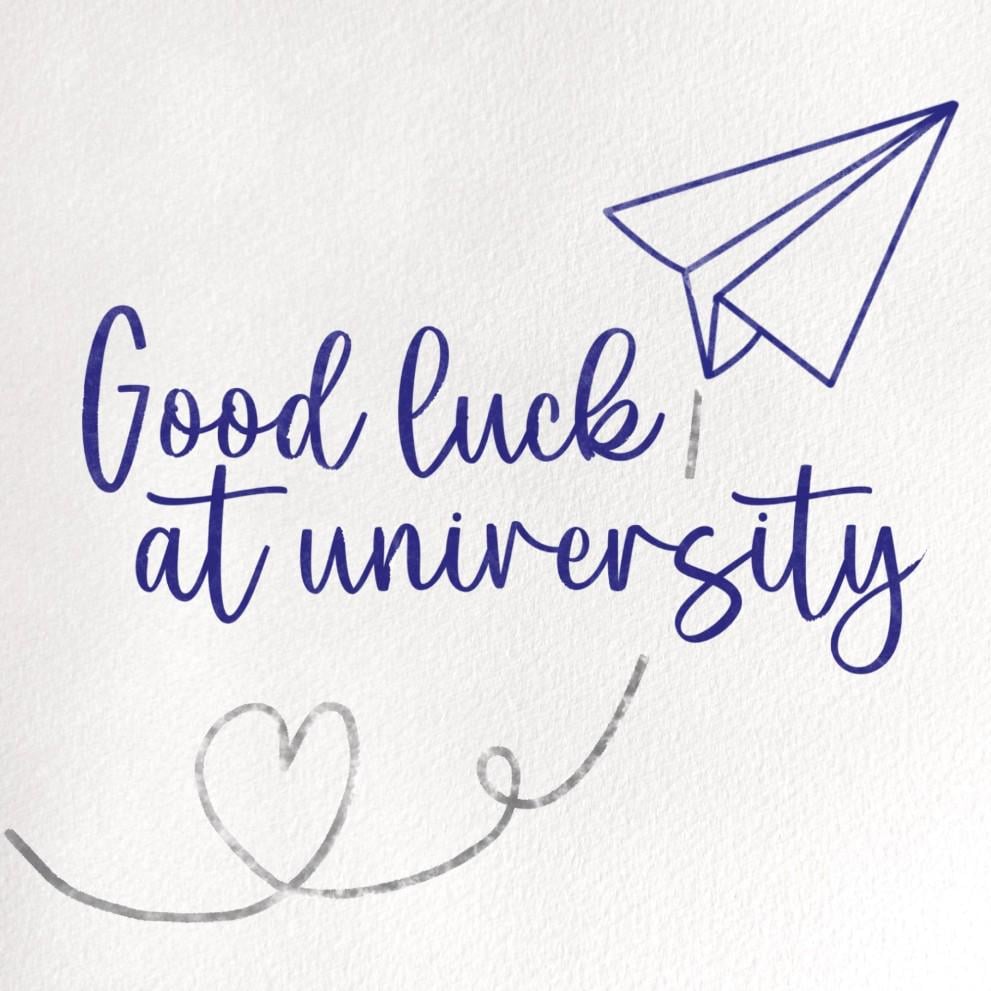 Good luck
at university